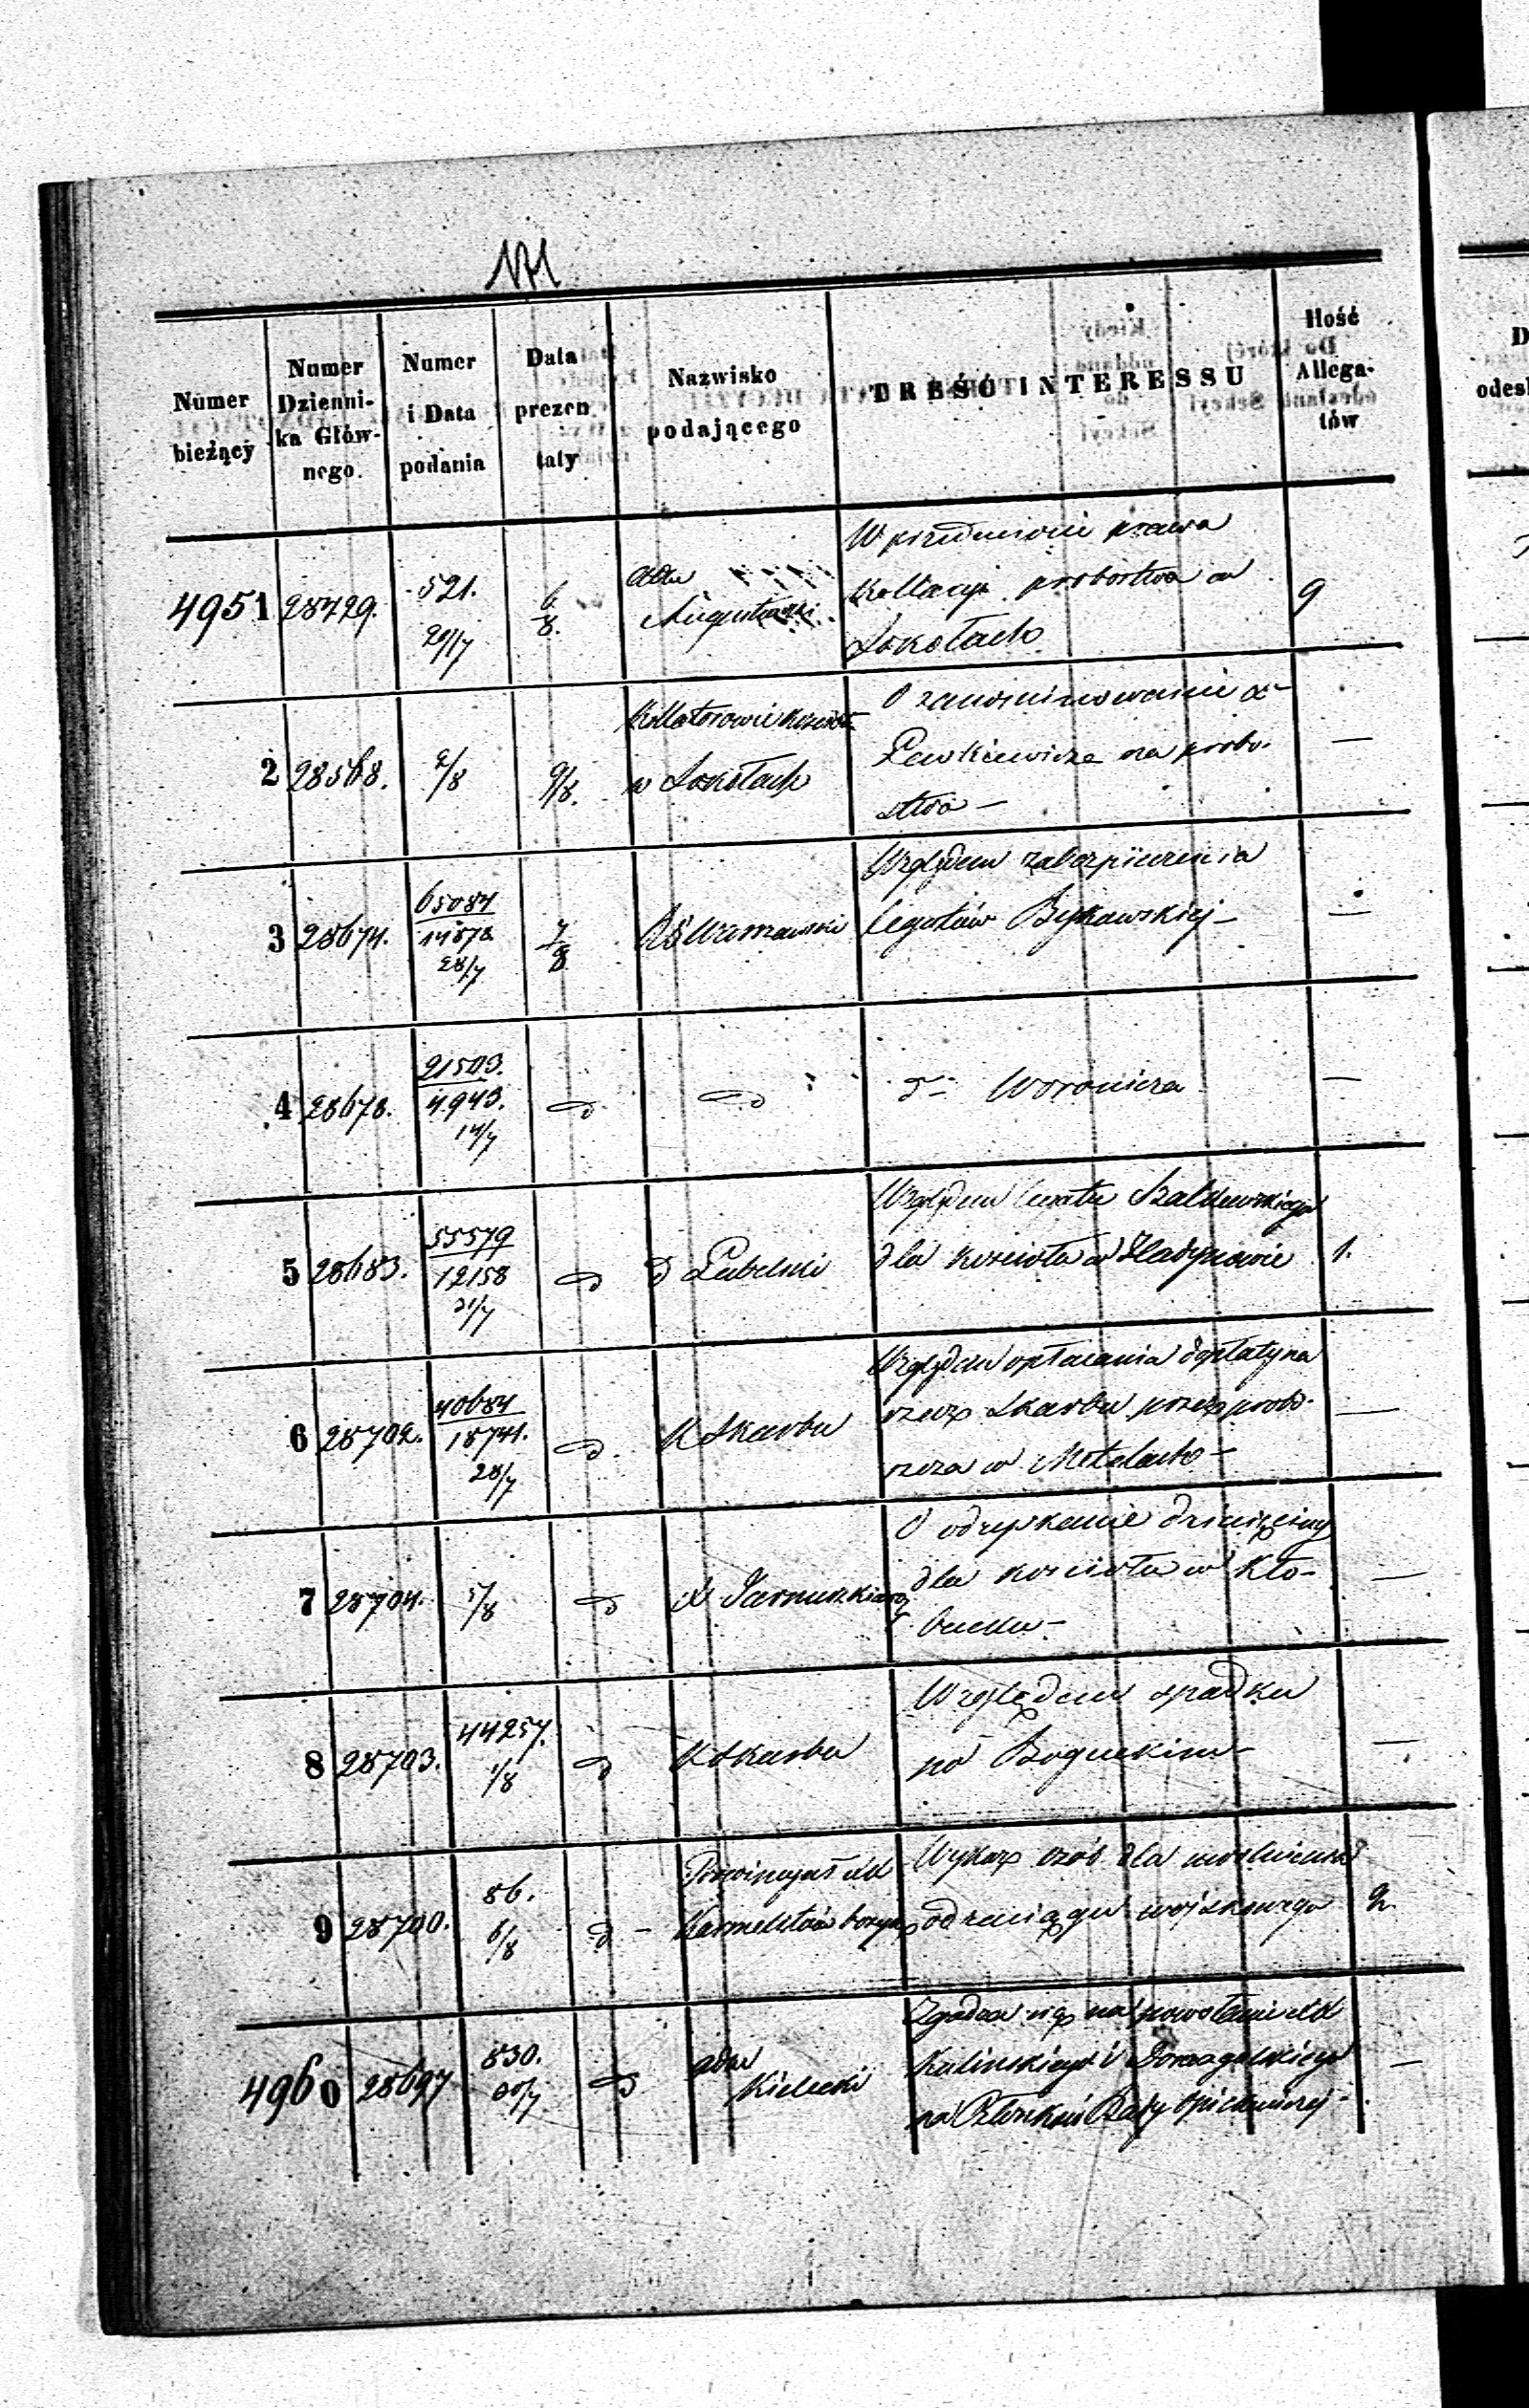 Numer bieżący
Numer Dzienni- ka Głów- nego.
Numer i Data podania
Data prezen taty
Nazwisko podającego
TREŚĆ INTERESSU
Ilość Allega- tów
4951 28429. 521. 29/7 6/8. Adm Augustowski
W przedmiocie prawa
Kollacyi probostwa w
Sokołach
9
2 28568. 2/8 9/8. Kollatorowie
w Sokołach
O zanominowanie X
Lewkiewicza na probo-
stwo —
—
3 28674. 65084/14878 28/7 7/8 RG Warszawski
Względem zabezpieczenia
legatów Bykawskiej —
—
4 28678. 21503./4943. 14/7 d d
d — Woronicza
—
5 28683. 55579/12158 21/7 d d Lubelski
Względem
dla kościoła w
1.
6 28702. 40684/18741. 28/7 d. K Skarbu
Względem opłacania dopłaty na
rzecz Skarbu przez probo-
szcza w —
—
7 28704. 5/8 d X
O odzyskanie dziesięciny
dla kościoła w Kło-
bucku —
—
8 28703. 44257. 1/8 d K Skarbu
Względem spadku
po Boguckim —
—
9 28700. 86. 6/8 d — Prowincyał XX
Karmelitów bosych
Wykaz osób dla uwolnienia
od zaciągu wojskowego
2.
4960 28697 830. 30/7 d Adm
Kielecki
Zgadza się na powołanie XX
Kulinskiego i Domagalskiego
na Członków Rady Opiekuńczej —
—
D
odesł